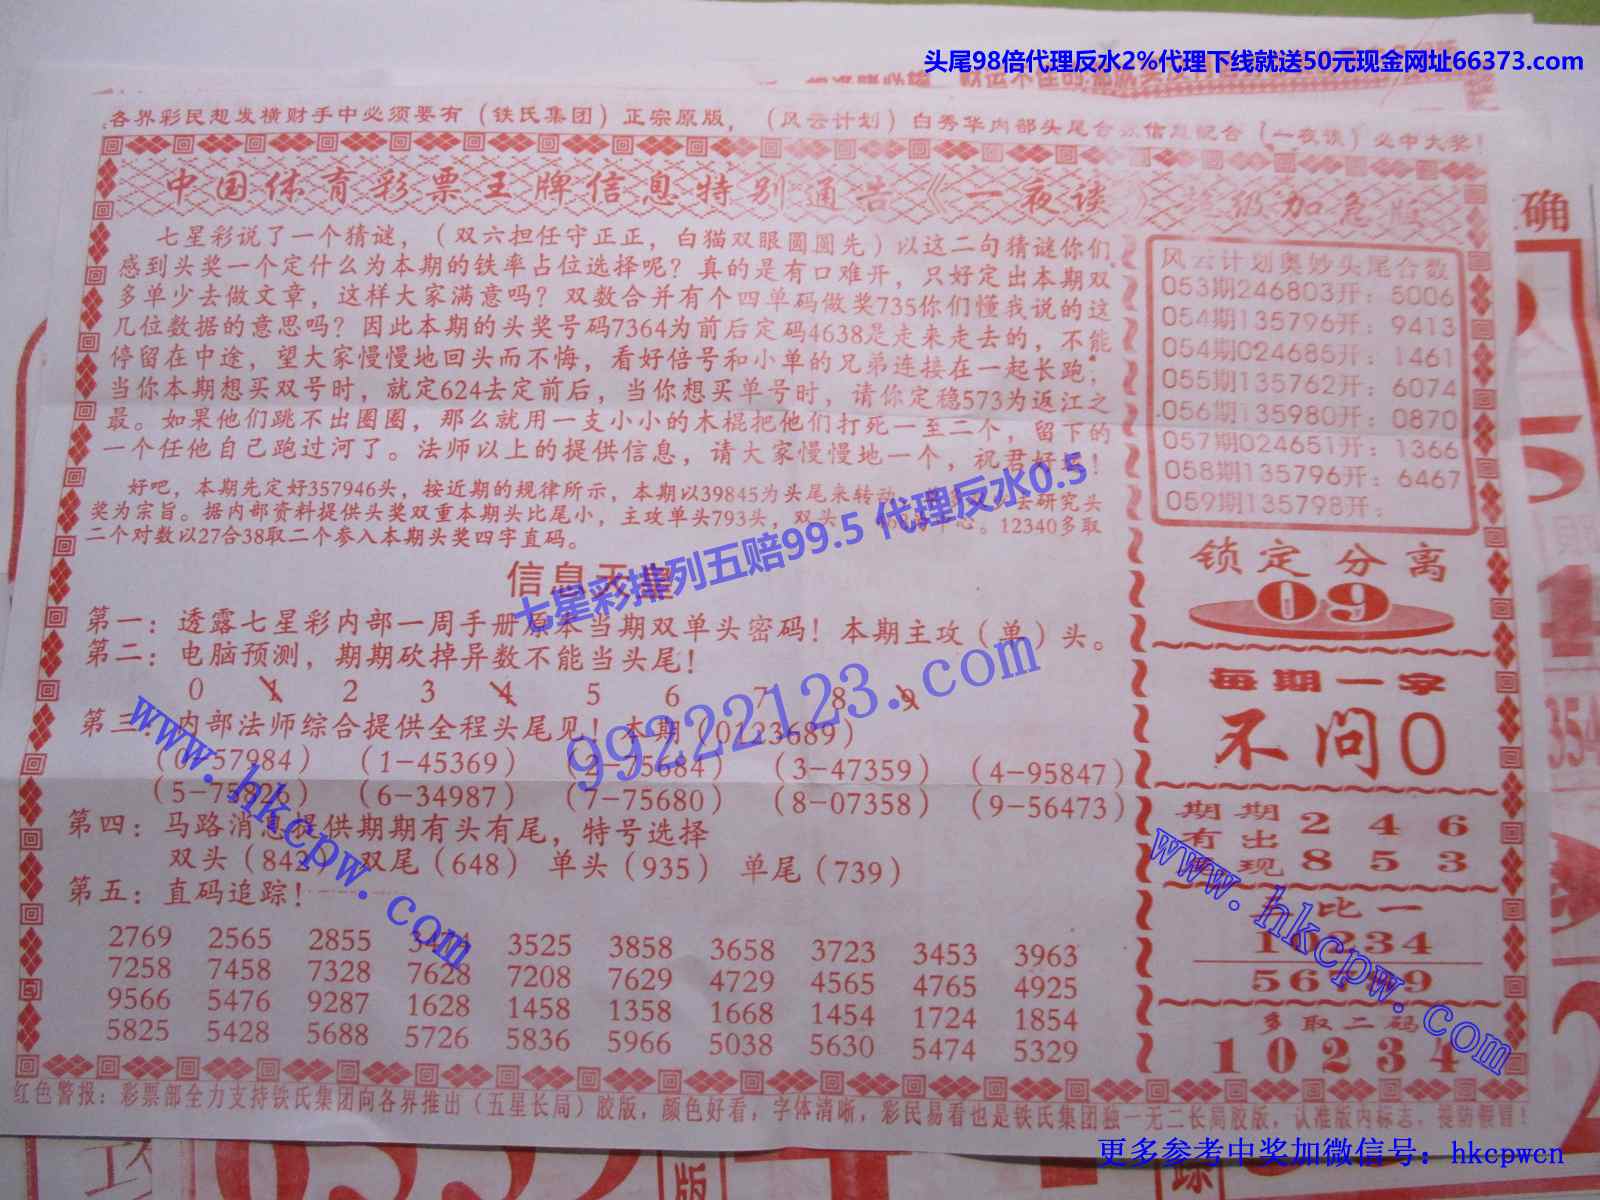 头尾98倍代理反水2%代理下线就送50元现金网址66373.com
各界彩民想发横财手中必须要有（铁氏集团）正宗原版，（风云计划）白秀华内部头尾合数信息配合（一夜谈）必中大奖！
中国体育彩票王牌信息特别通告《一夜谈》 加急版
七星彩说了一个猜谜，（双六担任守正正，白猫双眼圆圆先）以这二句猜谜你们
感到头奖一个定什么为本期的铁率占位选择呢？真的是有口难开，只好定出本期双
多单少去做文章，这样大家满意吗？双数合并有个四单码做奖735你们懂我说的这
几位数据的意思吗？因此本期的头奖号码7364为前后定码4638是走来走去的，不能
停留在中途，望大家慢慢地回头而不悔，看好倍号和小单的兄弟连接在一起长跑；
当你本期想买双号时，就定624去定前后，当你想买单号时，请你定稳573为返江之
最。如果他们跳不出圈圈，那么就用一支小小的木棍把他们打死一至二个，留下的
一个任他自己跑过河了。法师以上的提供信息，请大家慢慢地一个，祝君好运！
好吧，本期先定好357946头，按近期的规律所示，本期以39845为头尾来转动 去研究头
奖为宗旨。据内部资料提供头奖双重本期头比尾小，主攻单头793头，双头 心。12340多取
二个对数以27合38取二个参入本期头奖四字直码。
信息天
第一：透露七星彩内部一周手册原本当期双单头密码！本期主攻（单）头。
第二：电脑预测，期期砍掉异数不能当头尾！
0 1 2 3 4 5 6 7 8 9
第三 内部法师综合提供全程头尾见！本期（0123689）
（0-57984）（1-45369）（2-75684）（3-47359）（4-95847）
（6-34987）（7-75680）（8-07358）（9-56473）
第四：马路消息提供期期有头有尾，特号选择
双头（842）双尾（648）单头（935）单尾（739）
第五：直码追踪！
2769 2565 2855 3525 3858 3658 3723 3453 3963
7258 7458 7328 7628 7208 7629 4729 4565 4765 4925
9566 5476 9287 1628 1458 1358 1668 1454 1724 1854
5825 5428 5688 5726 5836 5966 5038 5630 5474 5329
风云计划奥妙头尾合数
053期246803开：5006
054期135796开：9413
054期024685开：1461
055期135762开：6074
056期135980开：0870
057期024651开：1366
058期135796开：6467
059期135798开：
锁定分离
09
每期一字
不问0
期期 2 4 6
有出
现 8 5 3
比一
10234
56789
多取二码
10234
红色警报：彩票部全力支持铁氏集团向各界推出（五星长局）胶版，颜色好看，字体清晰，彩民易看也是铁氏集团独一无二长局胶版，认准版内标志，提防假冒！
七星彩排列五赔99.5 代理反水0.5
99222123.com
www.hkcpw.com
www.hkcpw.com
更多参考中奖加微信号：hkcpwcn
确
354
版